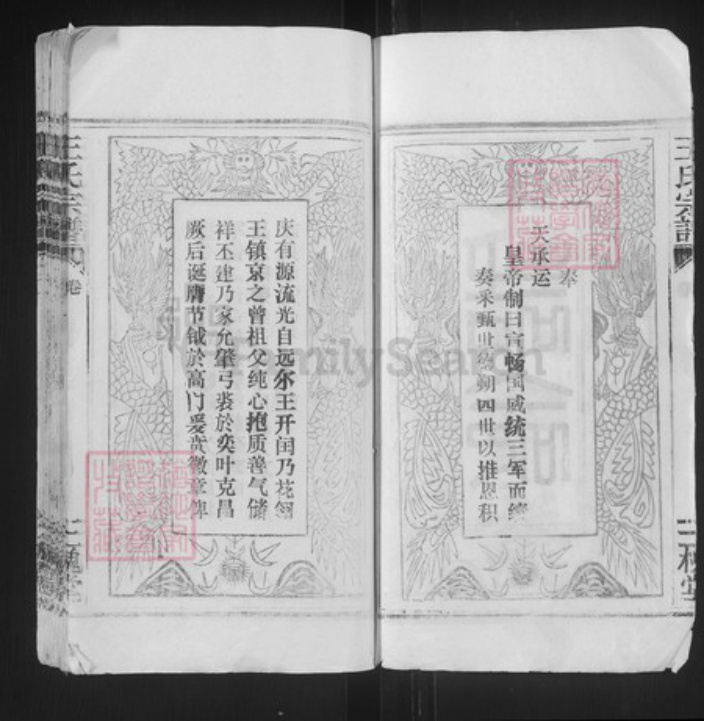 王氏宗譜
奉
天承运
皇帝制曰宣畅国威统三军而
奏采甄世绩朔四世以推恩积
二槐堂
庆有源流光自远尔王开闰乃花翎
王镇京之曾祖父纯心抱质善气储
祥丕建乃家允肇弓裘於奕叶克昌
厥后诞膺节钺於高门爰贲徽章俾
王氏宗譜
卷
二槐堂
FamilySearch